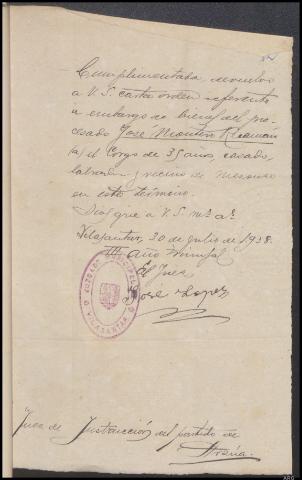 Cumplimentada devuelvo
a V. S. carta orden referente
a embargo de bienes del pro-
cesado José Montero Reamón
(a) el Corgo de 35 años, casado,
labrador y vecino de Mezonzo
en este término.
Dios gue a V. S. ms. as.
Vilasantar, 30 de Julio de 1938.
III Año Triunfal
El Juez
José Lopez
JUZGADO MUNICIPAL
VILASANTAR
Juez de Instrucción del partido de
Arzúa.